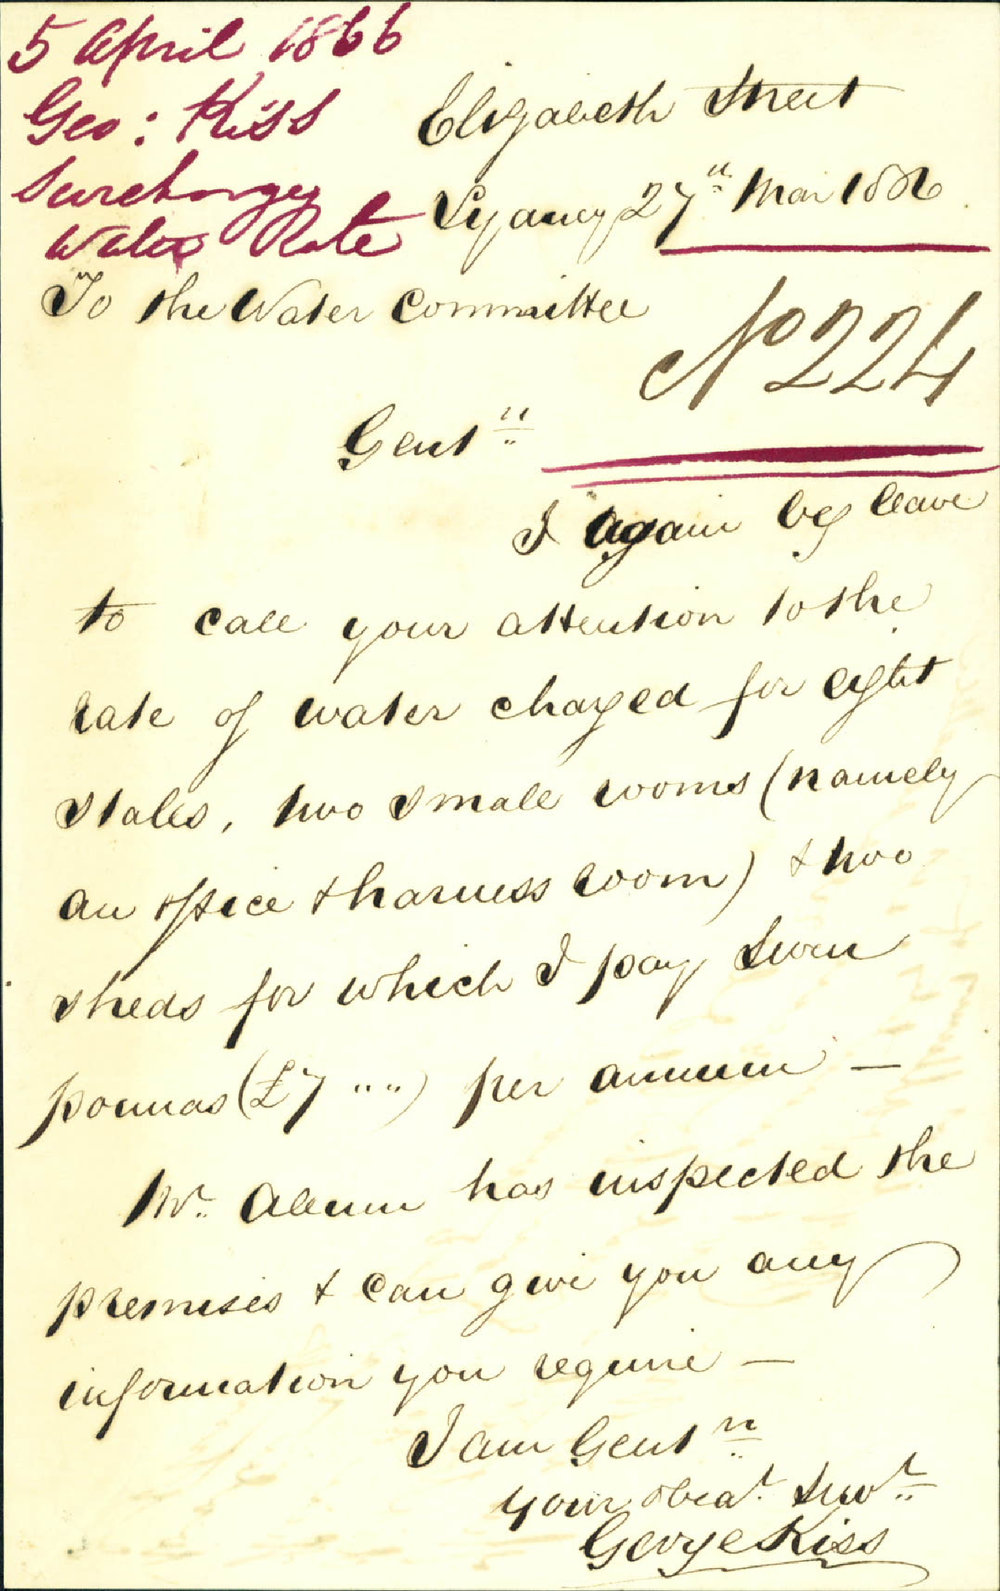 5 April 1866
Geo: Kiss
Surcharge
Water Rate
Elizabeth Street
Sydney 27th Mar 1866
To the Water Committee
No 224
Gentn
I again beg leave
to call your attention to the
rate of water charged for eight
stalls, two small rooms (namely
an office & harness room) & two
sheds for which I pay seven
pounds (£7 " ") per annum —
Mr. Allum has inspected the
premises & can give you any
information you require —
I am Gentn
your obedt. Servt.
George Kiss